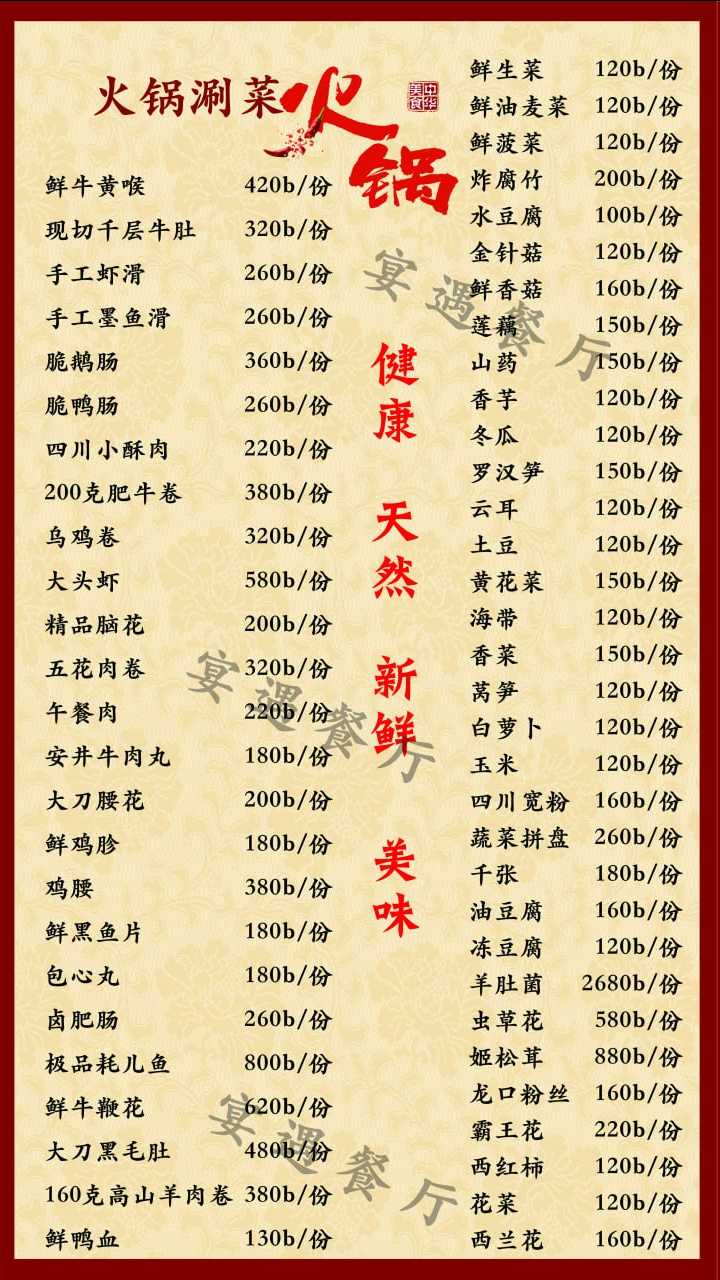 火锅涮菜
火锅
中华美食
鲜牛黄喉 420b/份
现切千层牛肚 320b/份
手工虾滑 260b/份
手工墨鱼滑 260b/份
脆鹅肠 360b/份
脆鸭肠 260b/份
四川小酥肉 220b/份
200克肥牛卷 380b/份
乌鸡卷 320b/份
大头虾 580b/份
精品脑花 200b/份
五花肉卷 320b/份
午餐肉 220b/份
安井牛肉丸 180b/份
大刀腰花 200b/份
鲜鸡胗 180b/份
鸡腰 380b/份
鲜黑鱼片 180b/份
包心丸 180b/份
卤肥肠 260b/份
极品耗儿鱼 800b/份
鲜牛鞭花 620b/份
大刀黑毛肚 480b/份
160克高山羊肉卷 380b/份
鲜鸭血 130b/份
健康
天然
新鲜
美味
鲜生菜 120b/份
鲜油麦菜 120b/份
鲜菠菜 120b/份
炸腐竹 200b/份
水豆腐 100b/份
金针菇 120b/份
鲜香菇 160b/份
莲藕 150b/份
山药 150b/份
香芋 120b/份
冬瓜 120b/份
罗汉笋 150b/份
云耳 120b/份
土豆 120b/份
黄花菜 150b/份
海带 120b/份
香菜 150b/份
莴笋 120b/份
白萝卜 120b/份
玉米 120b/份
四川宽粉 160b/份
蔬菜拼盘 260b/份
千张 180b/份
油豆腐 160b/份
冻豆腐 120b/份
羊肚菌 2680b/份
虫草花 580b/份
姬松茸 880b/份
龙口粉丝 160b/份
霸王花 220b/份
西红柿 120b/份
花菜 120b/份
西兰花 160b/份
宴遇餐厅
宴遇餐厅
宴遇餐厅